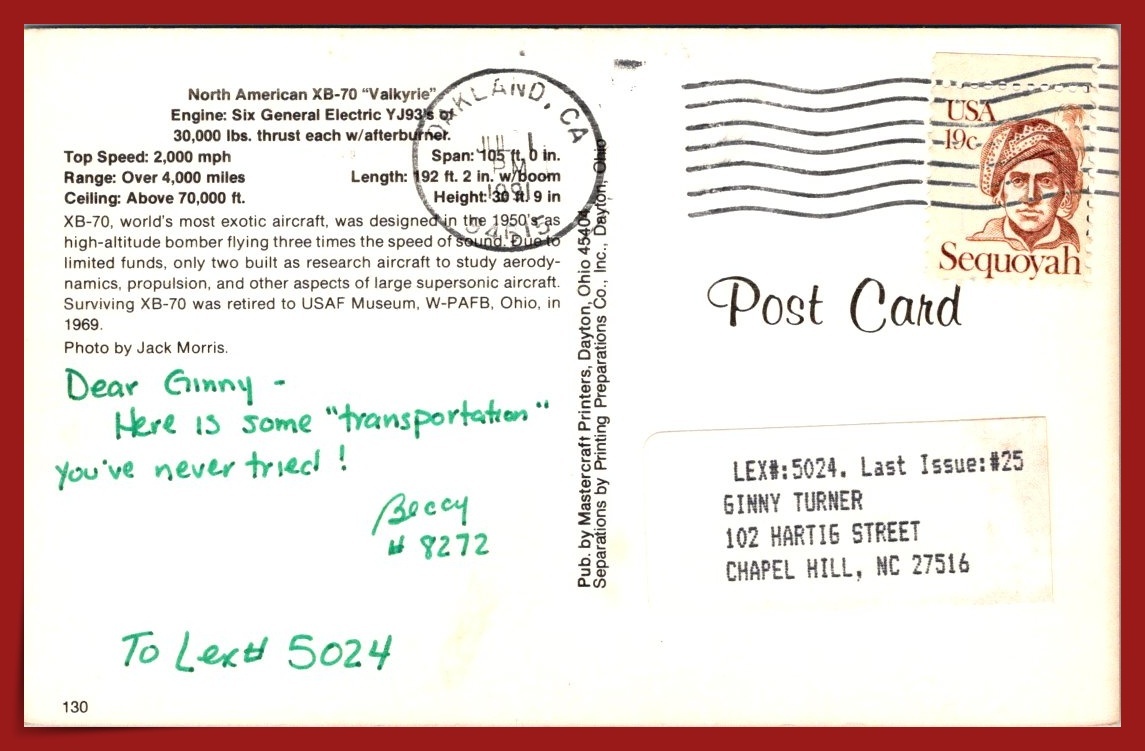 North American XB-70 "Valkyrie"
Engine: Six General Electric YJ93's of
30,000 lbs. thrust each w/afterburner.
Top Speed: 2,000 mph Span: 105 ft. 0 in.
Range: Over 4,000 miles Length: 192 ft. 2 in. w/boom
Ceiling: Above 70,000 ft. Height: 30 ft. 9 in
XB-70, world's most exotic aircraft, was designed in the 1950's as
high-altitude bomber flying three times the speed of sound. Due to
limited funds, only two built as research aircraft to study aerody-
namics, propulsion, and other aspects of large supersonic aircraft.
Surviving XB-70 was retired to USAF Museum, W-PAFB, Ohio, in
1969.
Photo by Jack Morris.
Dear Ginny -
Here is some "transportation"
you've never tried!
Beccy
# 8272
To Lex# 5024
130
Pub. by Mastercraft Printers, Dayton, Ohio 45404
Separations by Printing Preparations Co., Inc., Dayton, Ohio
OAKLAND, CA
JUL 1
PM
1991
94615
USA
19c
Sequoyah
Post Card
LEX#:5024. Last Issue:#25
GINNY TURNER
102 HARTIG STREET
CHAPEL HILL, NC 27516